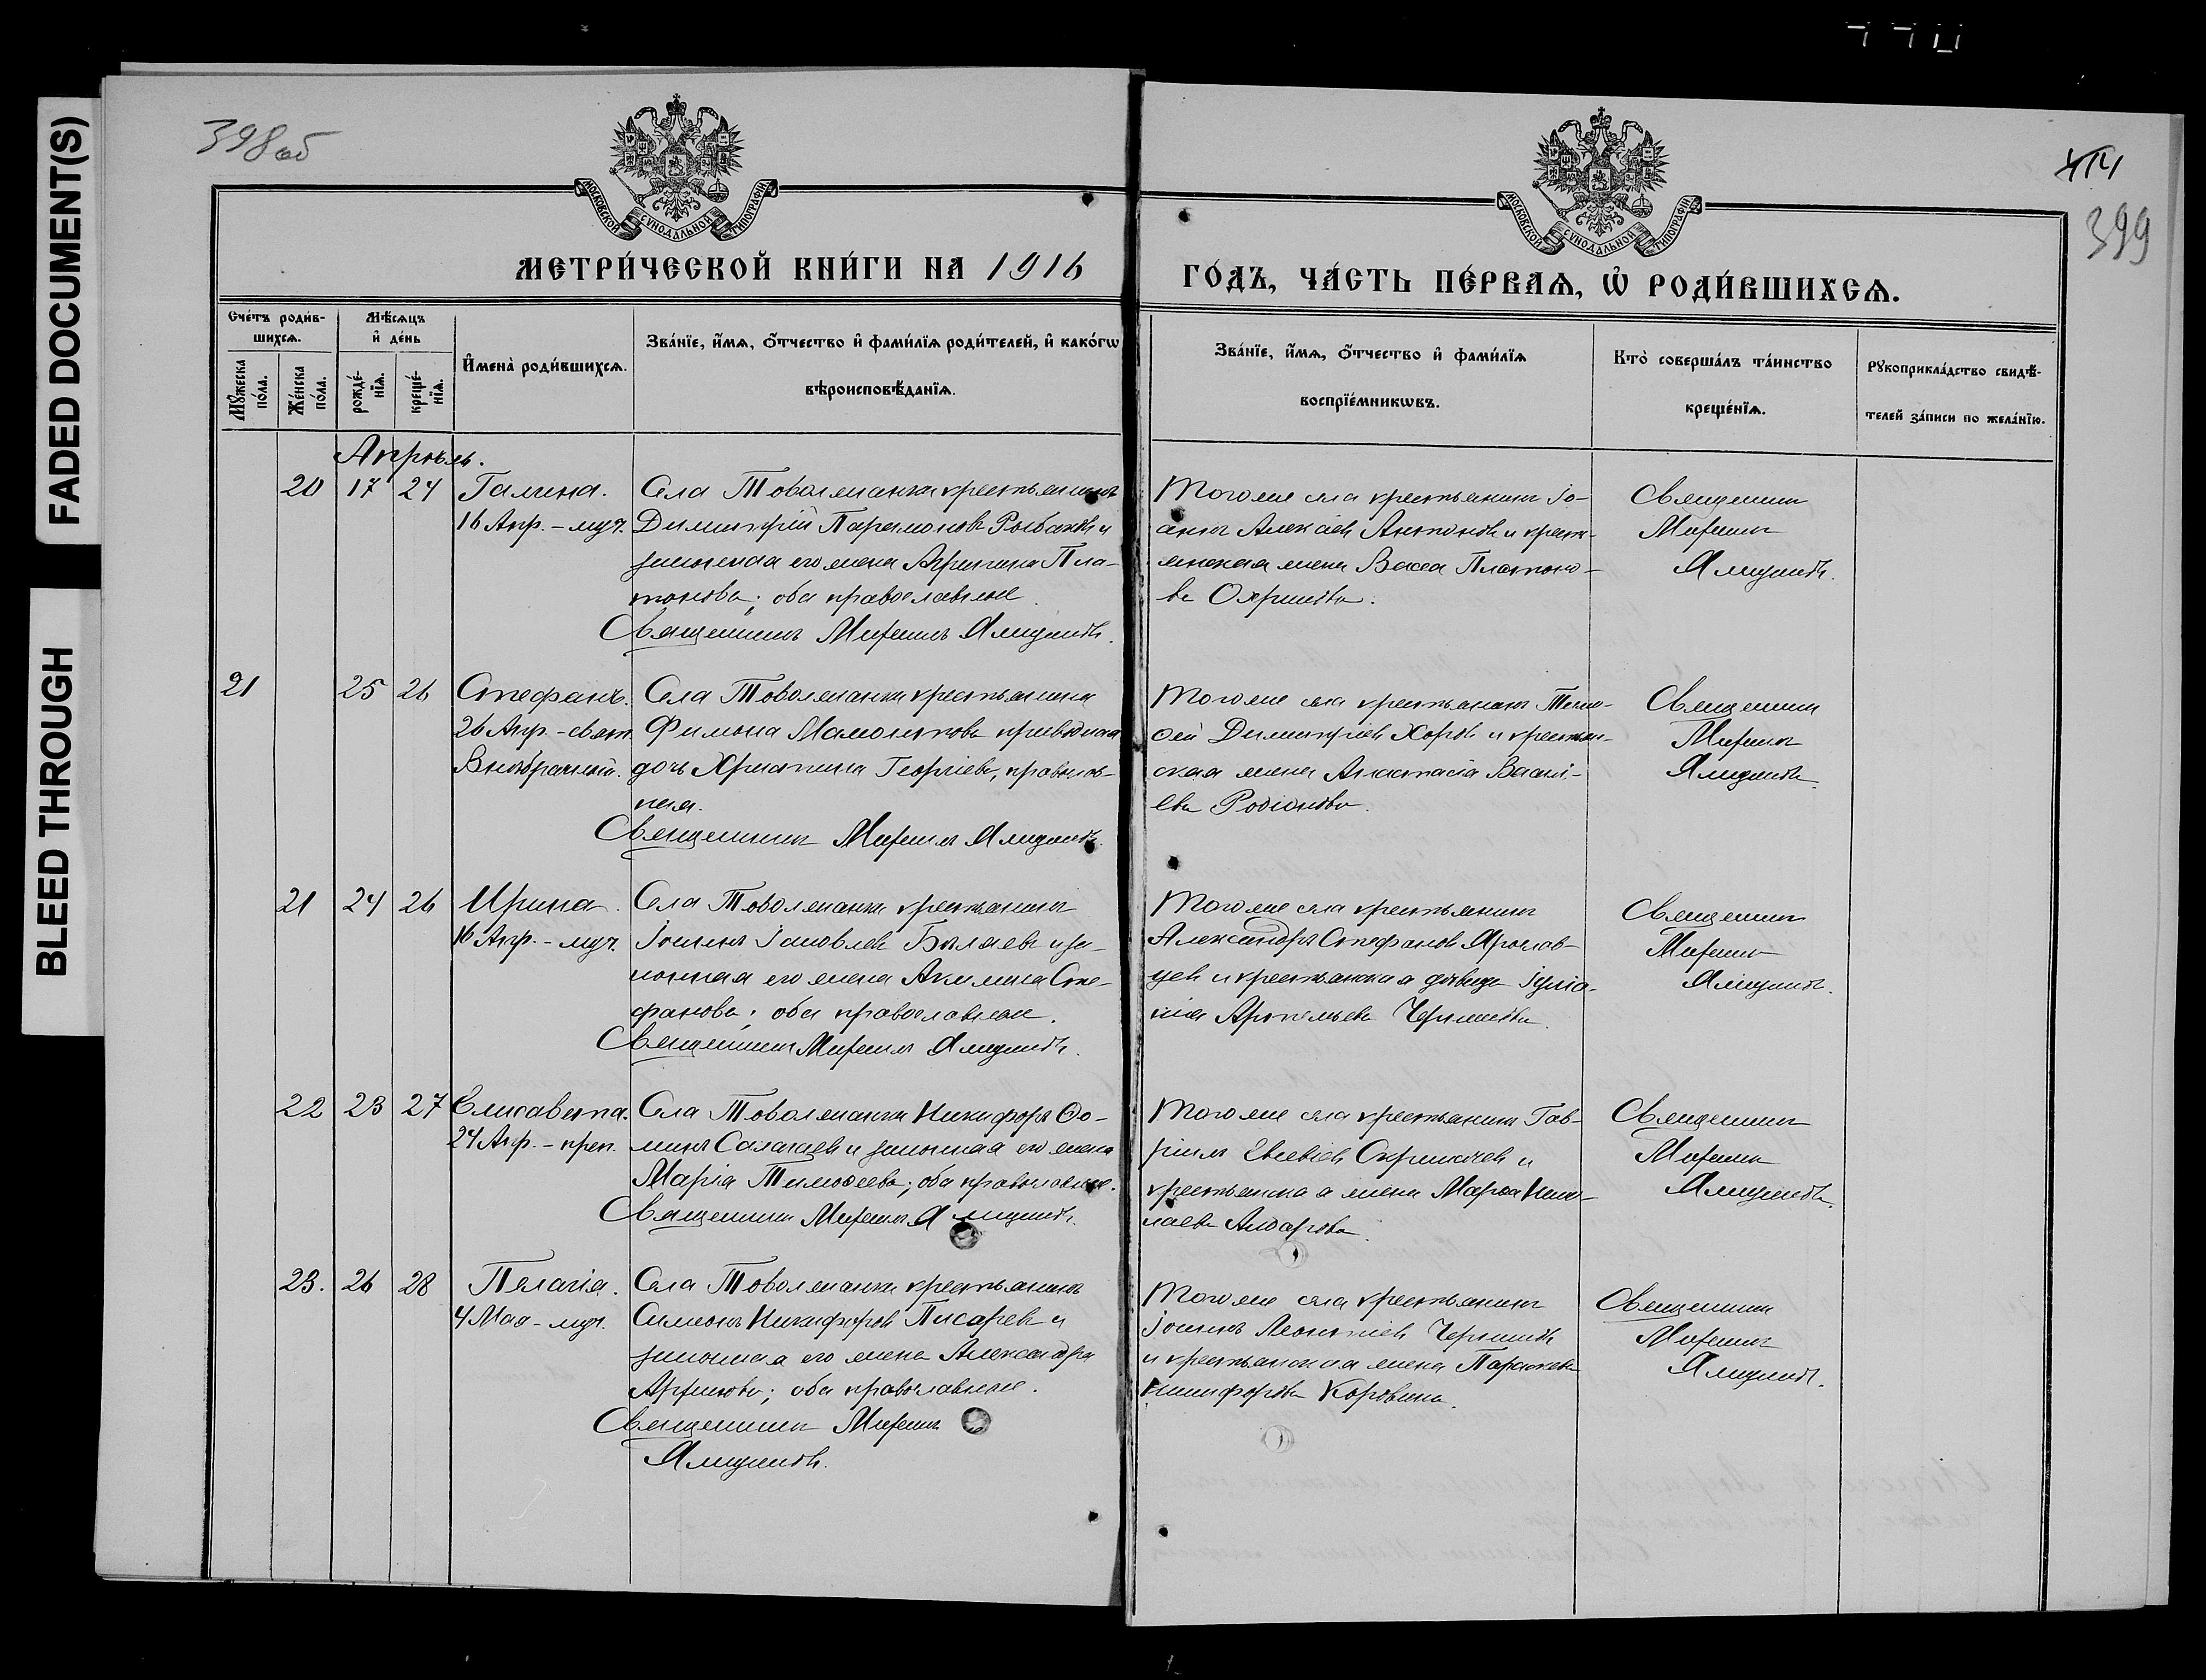 FADED DOCUMENT(S)
BLEED THROUGH
398об
414
399
МОСКОВСКОЙ СѴНОДАЛЬНОЙ ТИПОГРАФІИ
МОСКОВСКОЙ СѴНОДАЛЬНОЙ ТИПОГРАФІИ
МЕТРИ́ЧЕСКОЙ КНИ́ГИ НА 1916
ГО́ДЪ, ЧА́СТЬ ПЕ́РВАѦ, Ѡ҆ РОДИ́ВШИХСѦ.
Сче́тъ роди́в-
шихсѧ.
Мꙋ́жеска по́ла.
Же́нска по́ла.
Мѣ́сѧцъ
и҆ де́нь
рожде́-
нїѧ.
креще́-
нїѧ.
И҆мена̀ роди́вшихсѧ.
Зва́нїе, и҆́мѧ, ѻ҆́тчество и҆ фами́лїѧ роди́телей, и҆ како́гѡ
вѣроисповѣ́данїѧ.
Зва́нїе, и҆́мѧ, ѻ҆́тчество и҆ фами́лїѧ
воспрїе́мникѡвъ.
Кто̀ соверша́лъ та́инство
креще́нїѧ.
Рꙋкоприкла́дство свидѣ́-
телей за́писи по жела́нїю.
Апрѣль.
20 17 24 Галина.
16 Апр. - муч.
Села Товолжанки крестьянинъ
Димитрій Парамоновъ Рыбаковъ и
законная его жена Агрипина Пла-
тонова; оба православные.
Священникъ Михаилъ
Того же села крестьянинъ Іо-
аннъ Алексіевъ Антоновъ и кресть-
янская жена Васса Платоно-
ва
Священникъ
Михаилъ
21 25 26 Стефанъ.
26 Апр. - свят.
Внѣбрачный.
Села Товолжанки крестьянина
Филиона Мамонтова приводная
дочь Христина Георгіева, православ-
ная.
Священникъ Михаилъ
Того же села крестьянинъ Тимо-
ѳей Димитріевъ Хоровъ и крестьян-
ская жена Анастасія Васил-
ева Родіонова.
Священникъ
Михаилъ
21 24 26 Ирина.
16 Апр. - муч.
Села Товолжанки крестьянинъ
Іоаннъ Іаковлевъ Бѣляевъ и за-
конная его жена Акилина Сте-
фанова; оба православные.
Священникъ Михаилъ
Того же села крестьянинъ
Александръ Стефановъ Ярослав-
цевъ и крестьянская дѣвица Іуліа-
нія
Священникъ
Михаилъ
22 23 27 Елисавета.
24 Апр. - преп.
Села Товолжанки Никифоръ Ѳо-
минъ и законная его жена
Марія Тимоѳеева; оба православные.
Священникъ Михаилъ
Того же села крестьянинъ Гав-
ріилъ и
крестьянская жена Марѳа Нико-
лаева
Священникъ
Михаилъ
23. 26 28 Пелагія.
4 Мая - муч.
Села Товолжанки крестьянинъ
Симеонъ Никифоровъ Писаревъ и
законная его жена Александра
оба православные.
Священникъ Михаилъ
Того же села крестьянинъ
Іоаннъ Леонтіевъ
и крестьянская жена Параскева
Никифорова Коровина.
Священникъ
Михаилъ